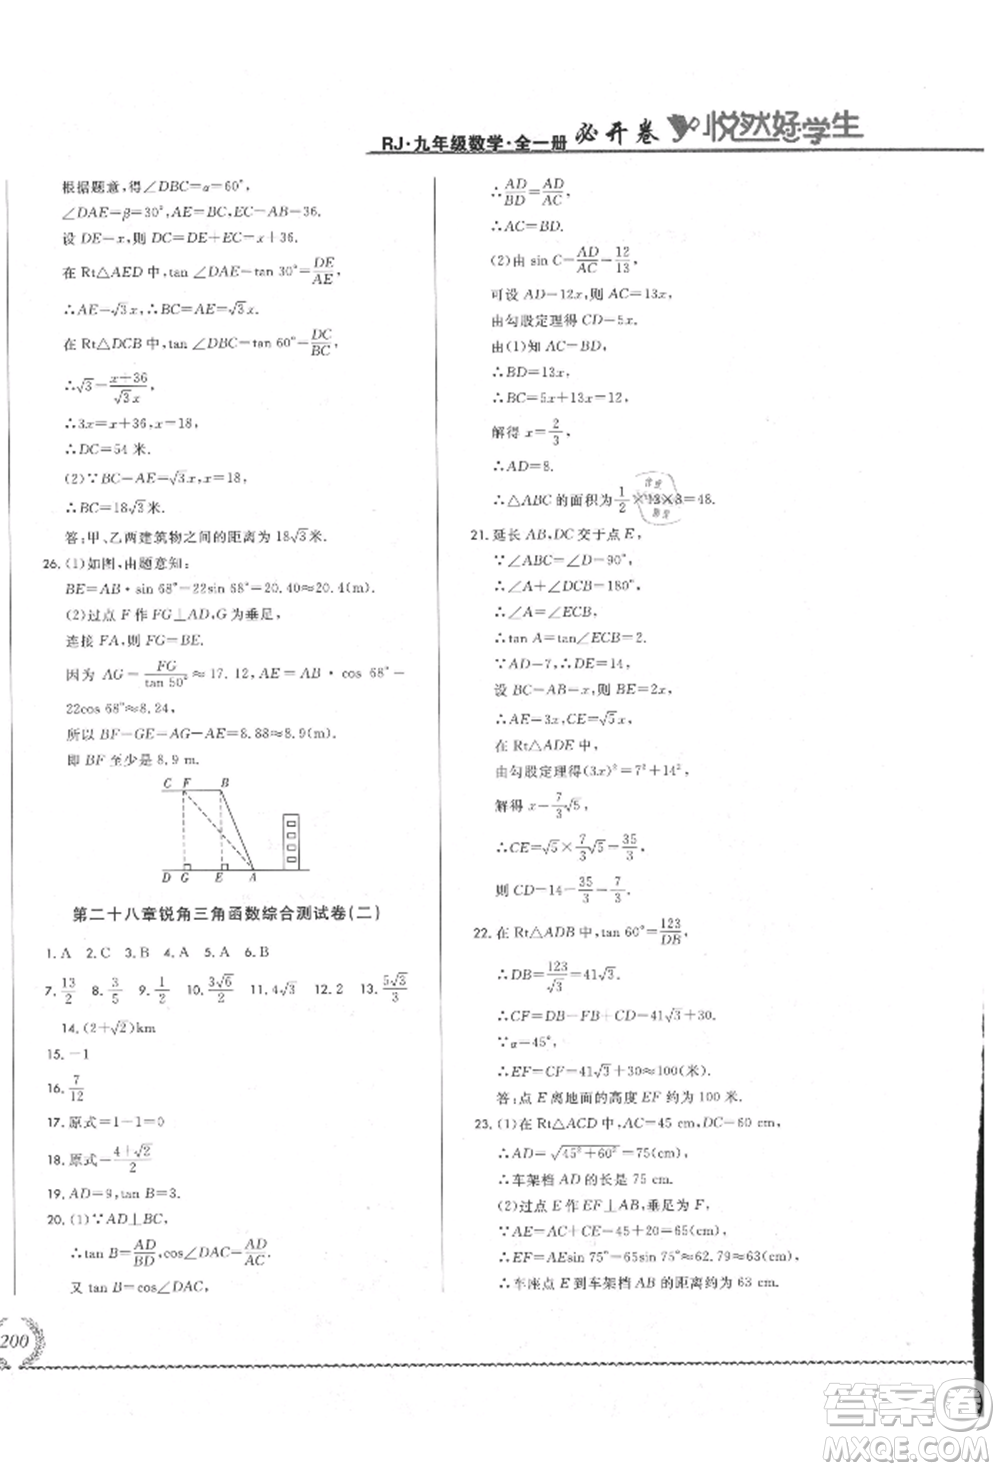 RJ·九年级数学·全一册 必开卷 悦然好学生
根据题意,得∠DBC=α=60°,
∠DAE=β=30°,AE=BC,EC=AB=36.
设 DE=x,则 DC=DE+EC=x+36.
在 Rt△AED 中,tan ∠DAE=tan 30°=DE/AE,
∴AE=√3x,∴BC=AE=√3x.
在 Rt△DCB 中,tan ∠DBC=tan 60°=DC/BC,
∴√3=(x+36)/(√3x),
∴3x=x+36,x=18,
∴DC=54 米.
(2)∵BC=AE=√3x,x=18,
∴BC=18√3米.
答:甲、乙两建筑物之间的距离为 18√3米.
26.(1)如图,由题意知:
BE=AB·sin 68°=22sin 68°=20.40≈20.4(m).
(2)过点 F 作 FG⊥AD,G 为垂足,
连接 FA,则 FG=BE.
因为 AG=FG/tan 50°≈17.12,AE=AB·cos 68°=
22cos 68°≈8.24,
所以 BF=GE=AG-AE=8.88≈8.9(m).
即 BF 至少是 8.9 m.
C F B
D G E A
第二十八章锐角三角函数综合测试卷(二)
1.A 2.C 3.B 4.A 5.A 6.B
7.13/2 8.3/5 9.1/2 10.3√6/2 11.4√3 12.2 13.5√3/3
14.(2+√2)km
15.-1
16.7/12
17.原式=1-1=0
18.原式=(4+√2)/2
19.AD=2,tan B=3.
20.(1)∵AD⊥BC,
∴tan B=AD/BD,cos∠DAC=AD/AC.
又 tan B=cos∠DAC,
∴AD/BD=AD/AC,
∴AC=BD.
(2)由 sin C=AD/AC=12/13,
可设 AD=12x,则 AC=13x,
由勾股定理得 CD=5x.
由(1)知 AC=BD,
∴BD=13x,
∴BC=5x+13x=12,
解得 x=2/3,
∴AD=8.
∴△ABC 的面积为1/2×12×8=48.
21.延长 AB,DC 交于点 E,
∵∠ABC=∠D=90°,
∴∠A+∠DCB=180°,
∴∠A=∠ECB,
∴tan A=tan∠ECB=2.
∵AD=7,∴DE=14,
设 BC=AB=x,则 BE=2x,
∴AE=3x,CE=√5x,
在 Rt△ADE 中,
由勾股定理得(3x)²=7²+14²,
解得 x=7/3√5,
∴CE=√5×7/3√5=35/3,
∴CD=14-35/3=7/3.
22.在 Rt△ADB 中,tan 60°=123/DB,
∴DB=123/√3=41√3,
∴CF=DB-FB+CD=41√3+30.
∵α=45°,
∴EF=CF=41√3+30≈100(米).
答:点 E 离地面的高度 EF 约为 100 米.
23.(1)在 Rt△ACD 中,AC=45 cm,DC=60 cm,
∴AD=√(45²+60²)=75(cm),
∴车架档 AD 的长是 75 cm.
(2)过点 E 作 EF⊥AB,垂足为 F,
∵AE=AC+CE=45+20=65(cm),
∴EF=AEsin 75°=65sin 75°≈62.79≈63(cm),
∴车座点 E 到车架档 AB 的距离约为 63 cm.
200
答案圈
MXQE.COM